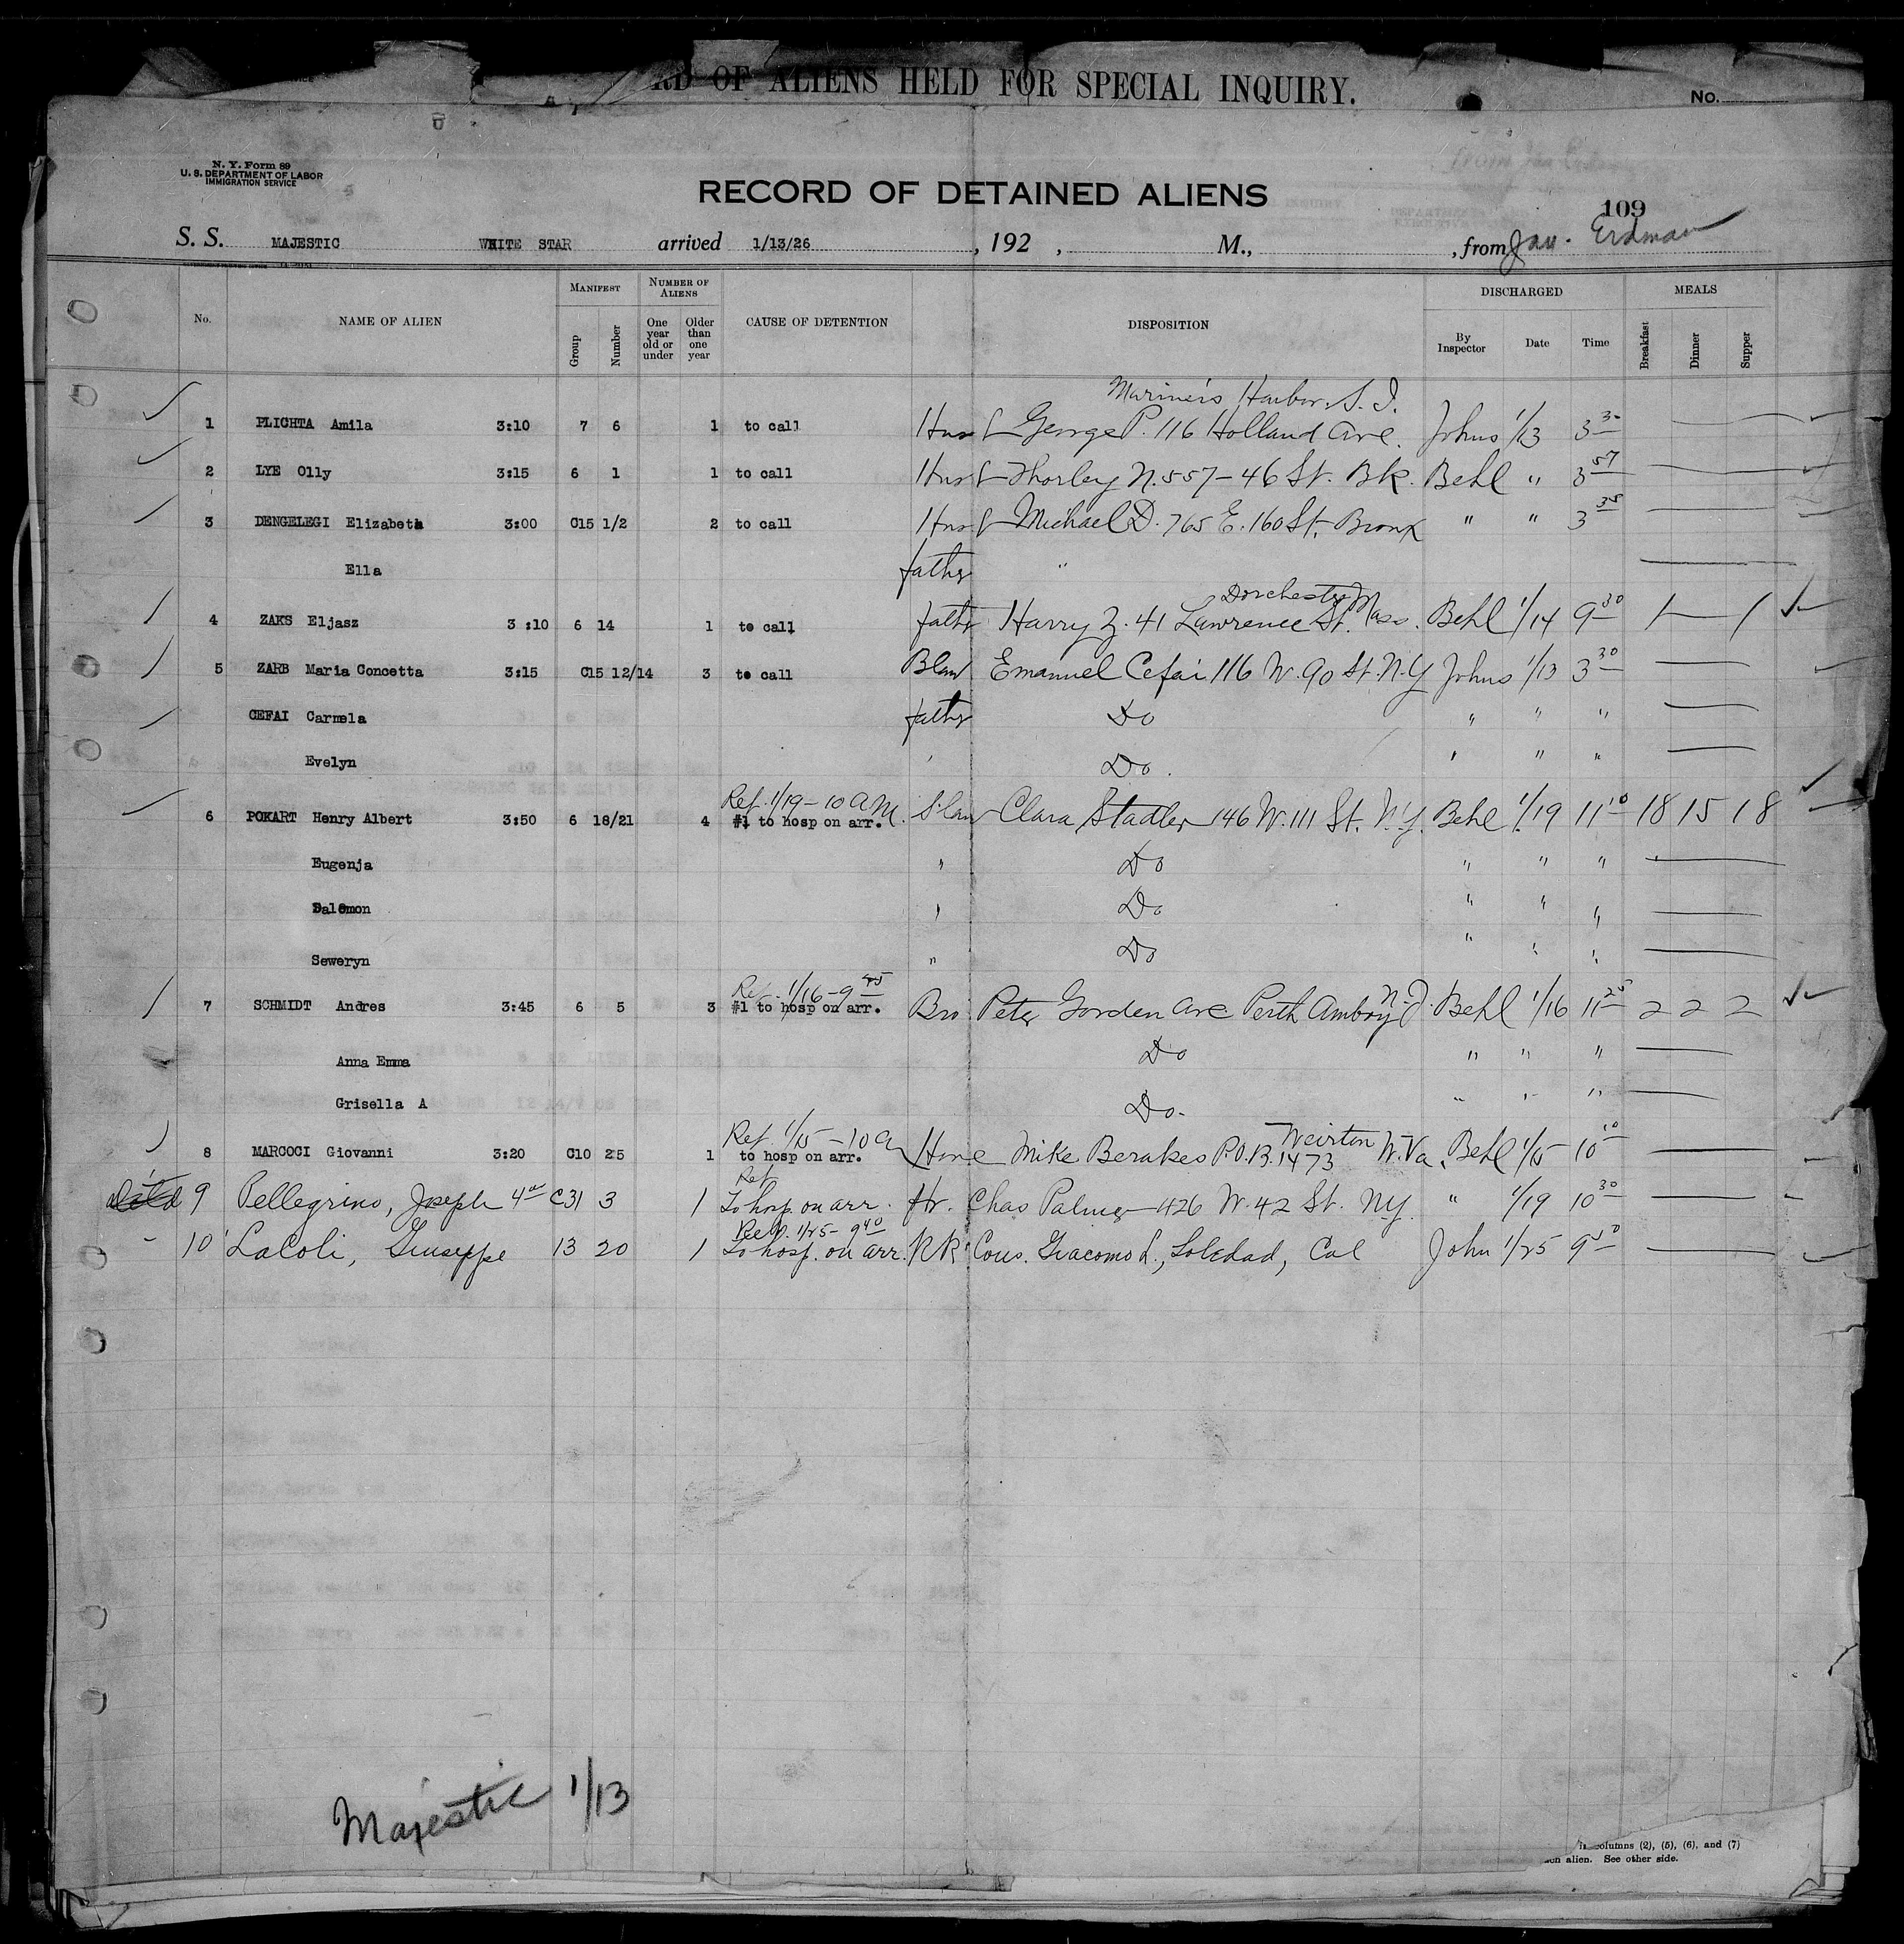 RD OF ALIENS HELD FOR SPECIAL INQUIRY.
No.
N. Y. Form 89
U. S. DEPARTMENT OF LABOR
IMMIGRATION SERVICE
RECORD OF DETAINED ALIENS
109
S. S. MAJESTIC WHITE STAR arrived 1/13/26, 192 , M., , from Jas. Erdman
No. NAME OF ALIEN MANIFEST NUMBER OF ALIENS CAUSE OF DETENTION DISPOSITION DISCHARGED MEALS
Group Number One year old or under Older than one year By Inspector Date Time Breakfast Dinner Supper
Mariners Harbor. S. I.
1 PLICHTA Amila 3:10 7 6 1 to call Husb George P. 116 Holland Ave. Johns 1/13 3 30
2 LYE Olly 3:15 6 1 1 to call Husb Thorley N. 557-46 St. Bk. Behl " 3 57
3 DENGELEGI Elizabeth 3:00 C15 1/2 2 to call Husb Michael D. 765 E. 160 St. Bronx " " 3 35
Ella father "
Dorchester Mass.
4 ZAKS Eljasz 3:10 6 14 1 to call father Harry Z. 41 Lawrence St. Behl 1/14 9 30 1 — 1
5 ZARB Maria Concetta 3:15 C15 12/14 3 to call Blaw Emanuel Cefai 116 W. 90 St. N.Y Johns 1/13 3 30
CEFAI Carmela father Do " " "
Evelyn ' Do. " " "
Ret. 1/19-10 AM.
6 POKART Henry Albert 3:50 6 18/21 4 #1 to hosp on arr. Slaw Clara Stadler 146 W. 111 St. N.Y. Behl 1/19 11 10 18 15 18
Eugenja " Do " " "
Salomon " Do " " "
Seweryn " Do " " "
Ret. 1/16-9 45
7 SCHMIDT Andres 3:45 6 5 3 #1 to hosp on arr. Bro Peter Gorden Ave Perth Amboy N.J. Behl 1/16 11 25 2 2 2
Anna Emma Do " " "
Grisella A Do. " " "
Ret. 1/15-10 a
Weirton
8 MARCOCI Giovanni 3:20 C10 25 1 to hosp on arr. Mike Berakes P.O.B. 1473 W. Va. Behl 1/15 10 10
Ret
9 Pellegrino, Joseph C31 3 1 To hosp. on arr. fr. Chas Palmer 426 W. 42 St. NY. " 1/19 10 30
1/25-9 40
10 Lacoli, Giuseppe 13 20 1 To hosp. on arr. RR Cous. Giacomo L., Soledad, Cal John 1/25 9 50
Majestic 1/13
columns (2), (5), (6), and (7)
alien. See other side.